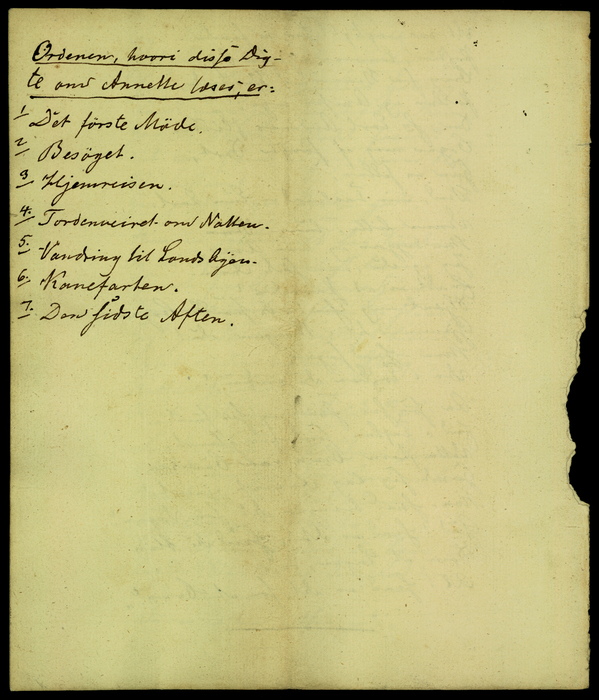 Ordenen, hvori disse Dig-
te om Annette læses, er:
1 Det förste Möde.
2 Besöget.
3 Hjemreisen.
4. Tordenveiret om Natten.
5. Vandring til Landsbyen.
6. Kanefarten.
7. Den sidste Aften.